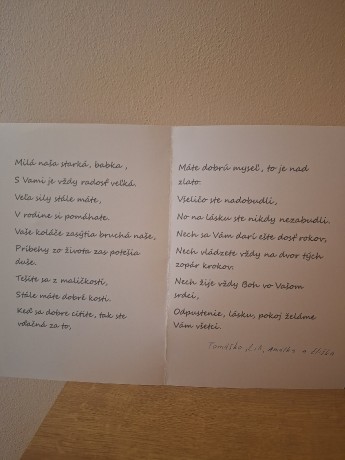 Milá naša starká, babka,
S Vami je vždy radosť veľká.
Veľa sily stále máte,
V rodine si pomáhate.
Vaše koláče zasýtia bruchá naše,
Príbehy zo života zas potešia
duše.
Tešíte sa z maličkostí,
Stále máte dobré kosti.
Keď sa dobre cítite, tak ste
vďačná za to,
Máte dobrú myseľ, to je nad
zlato.
Všeličo ste nadobudli,
No na lásku ste nikdy nezabudli.
Nech sa Vám darí ešte dosť rokov,
Nech vládzete vždy na dvor tých
zopár krokov.
Nech žije vždy Boh vo Vašom
srdci,
Odpustenie, lásku, pokoj želáme
Vám všetci.